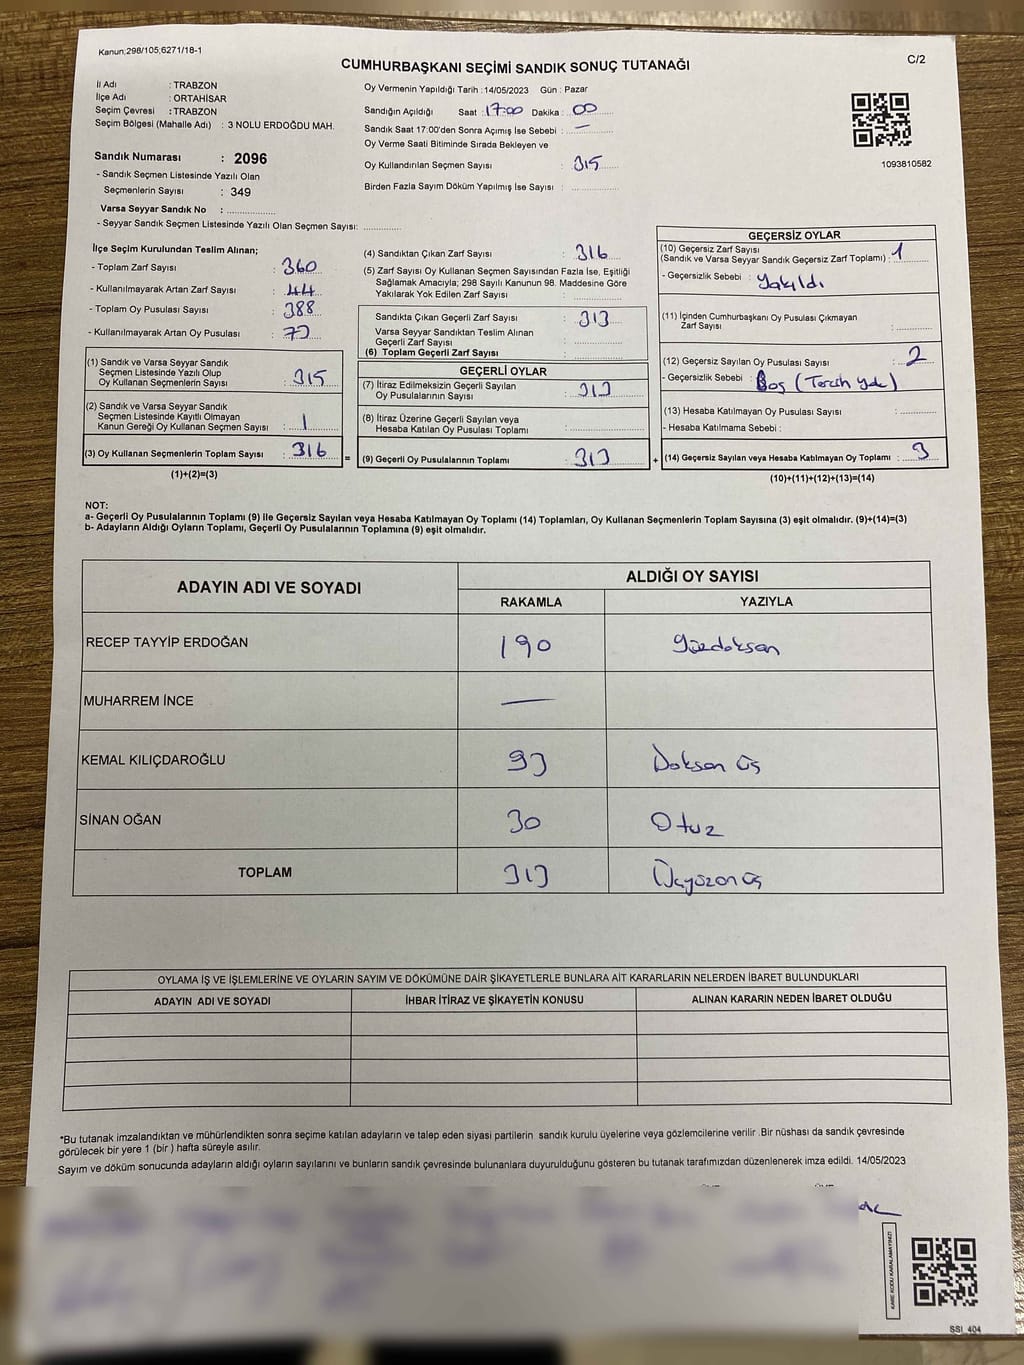 Kanun:298/105,6271/18-1
C/2
CUMHURBAŞKANI SEÇİMİ SANDIK SONUÇ TUTANAĞI
İl Adı : TRABZON
İlçe Adı : ORTAHİSAR
Seçim Çevresi : TRABZON
Seçim Bölgesi (Mahalle Adı) : 3 NOLU ERDOĞDU MAH.
Oy Vermenin Yapıldığı Tarih : 14/05/2023 Gün : Pazar
Sandığın Açıldığı Saat 17:00 Dakika : 00
Sandık Saat 17:00'den Sonra Açımış İse Sebebi : —
Oy Verme Saati Bitiminde Sırada Bekleyen ve
Oy Kullandırılan Seçmen Sayısı : 315
Birden Fazla Sayım Döküm Yapılmış İse Sayısı :
1093810582
Sandık Numarası : 2096
- Sandık Seçmen Listesinde Yazılı Olan
Seçmenlerin Sayısı : 349
Varsa Seyyar Sandık No :
- Seyyar Sandık Seçmen Listesinde Yazılı Olan Seçmen Sayısı:
İlçe Seçim Kurulundan Teslim Alınan;
- Toplam Zarf Sayısı : 360
- Kullanılmayarak Artan Zarf Sayısı : 44
- Toplam Oy Pusulası Sayısı : 388
- Kullanılmayarak Artan Oy Pusulası : 73
(1) Sandık ve Varsa Seyyar Sandık
Seçmen Listesinde Yazılı Olup
Oy Kullanan Seçmenlerin Sayısı : 315
(2) Sandık ve Varsa Seyyar Sandık
Seçmen Listesinde Kayıtlı Olmayan
Kanun Gereği Oy Kullanan Seçmen Sayısı : 1
(3) Oy Kullanan Seçmenlerin Toplam Sayısı : 316
(1)+(2)=(3)
(4) Sandıktan Çıkan Zarf Sayısı : 316
(5) Zarf Sayısı Oy Kullanan Seçmen Sayısından Fazla İse, Eşitliği
Sağlamak Amacıyla; 298 Sayılı Kanunun 98. Maddesine Göre
Yakılarak Yok Edilen Zarf Sayısı :
Sandıkta Çıkan Geçerli Zarf Sayısı : 313
Varsa Seyyar Sandıktan Teslim Alınan
Geçerli Zarf Sayısı :
(6) Toplam Geçerli Zarf Sayısı :
GEÇERLİ OYLAR
(7) İtiraz Edilmeksizin Geçerli Sayılan
Oy Pusulalarının Sayısı : 313
(8) İtiraz Üzerine Geçerli Sayılan veya
Hesaba Katılan Oy Pusulası Toplamı :
= (9) Geçerli Oy Pusulalarının Toplamı : 313 +
GEÇERSİZ OYLAR
(10) Geçersiz Zarf Sayısı
(Sandık ve Varsa Seyyar Sandık Geçersiz Zarf Toplamı) : 1
- Geçersizlik Sebebi : Yakıldı
(11) İçinden Cumhurbaşkanı Oy Pusulası Çıkmayan
Zarf Sayısı :
(12) Geçersiz Sayılan Oy Pusulası Sayısı : 2
- Geçersizlik Sebebi : Boş (Tercih yok)
(13) Hesaba Katılmayan Oy Pusulası Sayısı :
- Hesaba Katılmama Sebebi :
(14) Geçersiz Sayılan veya Hesaba Katılmayan Oy Toplamı : 3
(10)+(11)+(12)+(13)=(14)
NOT:
a- Geçerli Oy Pusulalarının Toplamı (9) ile Geçersiz Sayılan veya Hesaba Katılmayan Oy Toplamı (14) Toplamları, Oy Kullanan Seçmenlerin Toplam Sayısına (3) eşit olmalıdır. (9)+(14)=(3)
b- Adayların Aldığı Oyların Toplamı, Geçerli Oy Pusulalarının Toplamına (9) eşit olmalıdır.
ADAYIN ADI VE SOYADI
ALDIĞI OY SAYISI
RAKAMLA YAZIYLA
RECEP TAYYİP ERDOĞAN 190 Yüzdoksan
MUHARREM İNCE —
KEMAL KILIÇDAROĞLU 93 Doksan üç
SİNAN OĞAN 30 Otuz
TOPLAM 313 Üçyüzonüç
OYLAMA İŞ VE İŞLEMLERİNE VE OYLARIN SAYIM VE DÖKÜMÜNE DAİR ŞİKAYETLERLE BUNLARA AİT KARARLARIN NELERDEN İBARET BULUNDUKLARI
ADAYIN ADI VE SOYADI İHBAR İTİRAZ VE ŞİKAYETİN KONUSU ALINAN KARARIN NEDEN İBARET OLDUĞU
*Bu tutanak imzalandıktan ve mühürlendikten sonra seçime katılan adayların ve talep eden siyasi partilerin sandık kurulu üyelerine veya gözlemcilerine verilir .Bir nüshası da sandık çevresinde
görülecek bir yere 1 (bir ) hafta süreyle asılır.
Sayım ve döküm sonucunda adayların aldığı oyların sayılarını ve bunların sandık çevresinde bulunanlara duyurulduğunu gösteren bu tutanak tarafımızdan düzenlenerek imza edildi. 14/05/2023
KARE KODU KARALAMAYINIZ!
SSI_404